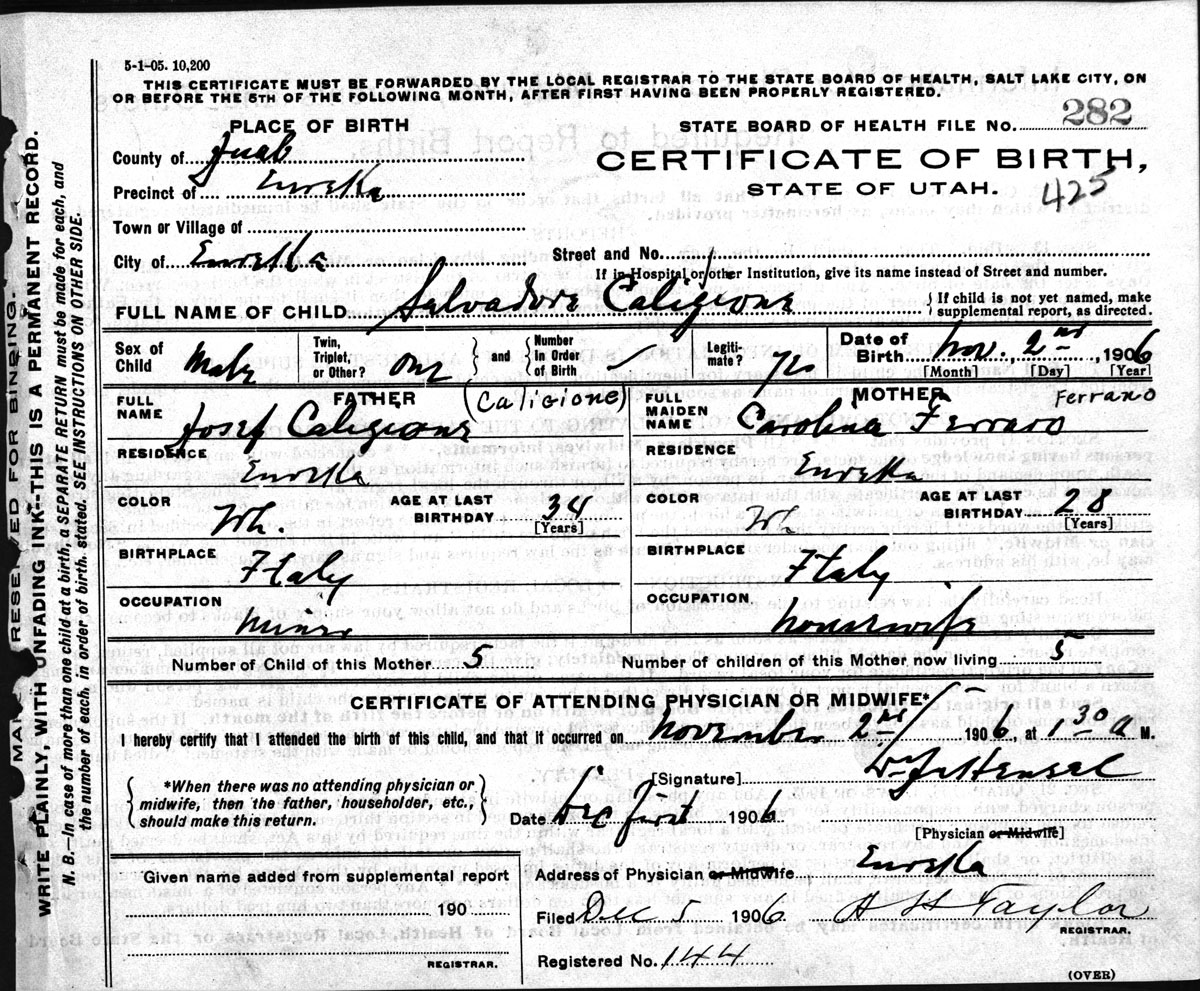 5-1-05. 10,200
THIS CERTIFICATE MUST BE FORWARDED BY THE LOCAL REGISTRAR TO THE STATE BOARD OF HEALTH, SALT LAKE CITY, ON
OR BEFORE THE 5TH OF THE FOLLOWING MONTH, AFTER FIRST HAVING BEEN PROPERLY REGISTERED.
PLACE OF BIRTH
STATE BOARD OF HEALTH FILE NO. 282
County of Juab
CERTIFICATE OF BIRTH,
Precinct of Eureka
STATE OF UTAH. 425
Town or Village of
City of Eureka
Street and No.
If in Hospital or other Institution, give its name instead of Street and number.
FULL NAME OF CHILD Salvadore Caligione
{If child is not yet named, make
supplemental report, as directed.
Sex of Child Male
Twin, Triplet, or Other? One } and { Number In Order of Birth
Legitimate? Yes
Date of Birth Nov. 2nd, 1906
[Month] [Day] [Year]
FATHER
FULL NAME Josef Caligione (Caligione)
MOTHER
FULL MAIDEN NAME Carolina Ferraro Ferrano
RESIDENCE Eureka
RESIDENCE Eureka
COLOR Wh AGE AT LAST BIRTHDAY 34 [Years]
COLOR Wh AGE AT LAST BIRTHDAY 28 [Years]
BIRTHPLACE Italy
BIRTHPLACE Italy
OCCUPATION Miner
OCCUPATION Housewife
Number of Child of this Mother 5
Number of children of this Mother now living 5
CERTIFICATE OF ATTENDING PHYSICIAN OR MIDWIFE*
I hereby certify that I attended the birth of this child, and that it occurred on November 2nd 1906, at 1 30 a M.
*When there was no attending physician or
midwife, then the father, householder, etc.,
should make this return.
[Signature] Hensel
Date Dec first 1906
[Physician or Midwife]
Given name added from supplemental report
190
REGISTRAR.
Address of Physician or Midwife Eureka
Filed Dec 5 1906 A H Taylor
REGISTRAR.
Registered No. 144
(OVER)
RESERVED FOR BINDING.
WRITE PLAINLY, WITH UNFADING INK--THIS IS A PERMANENT RECORD.
N. B.—In case of more than one child at a birth, a SEPARATE RETURN must be made for each, and
the number of each, in order of birth, stated. SEE INSTRUCTIONS ON OTHER SIDE.